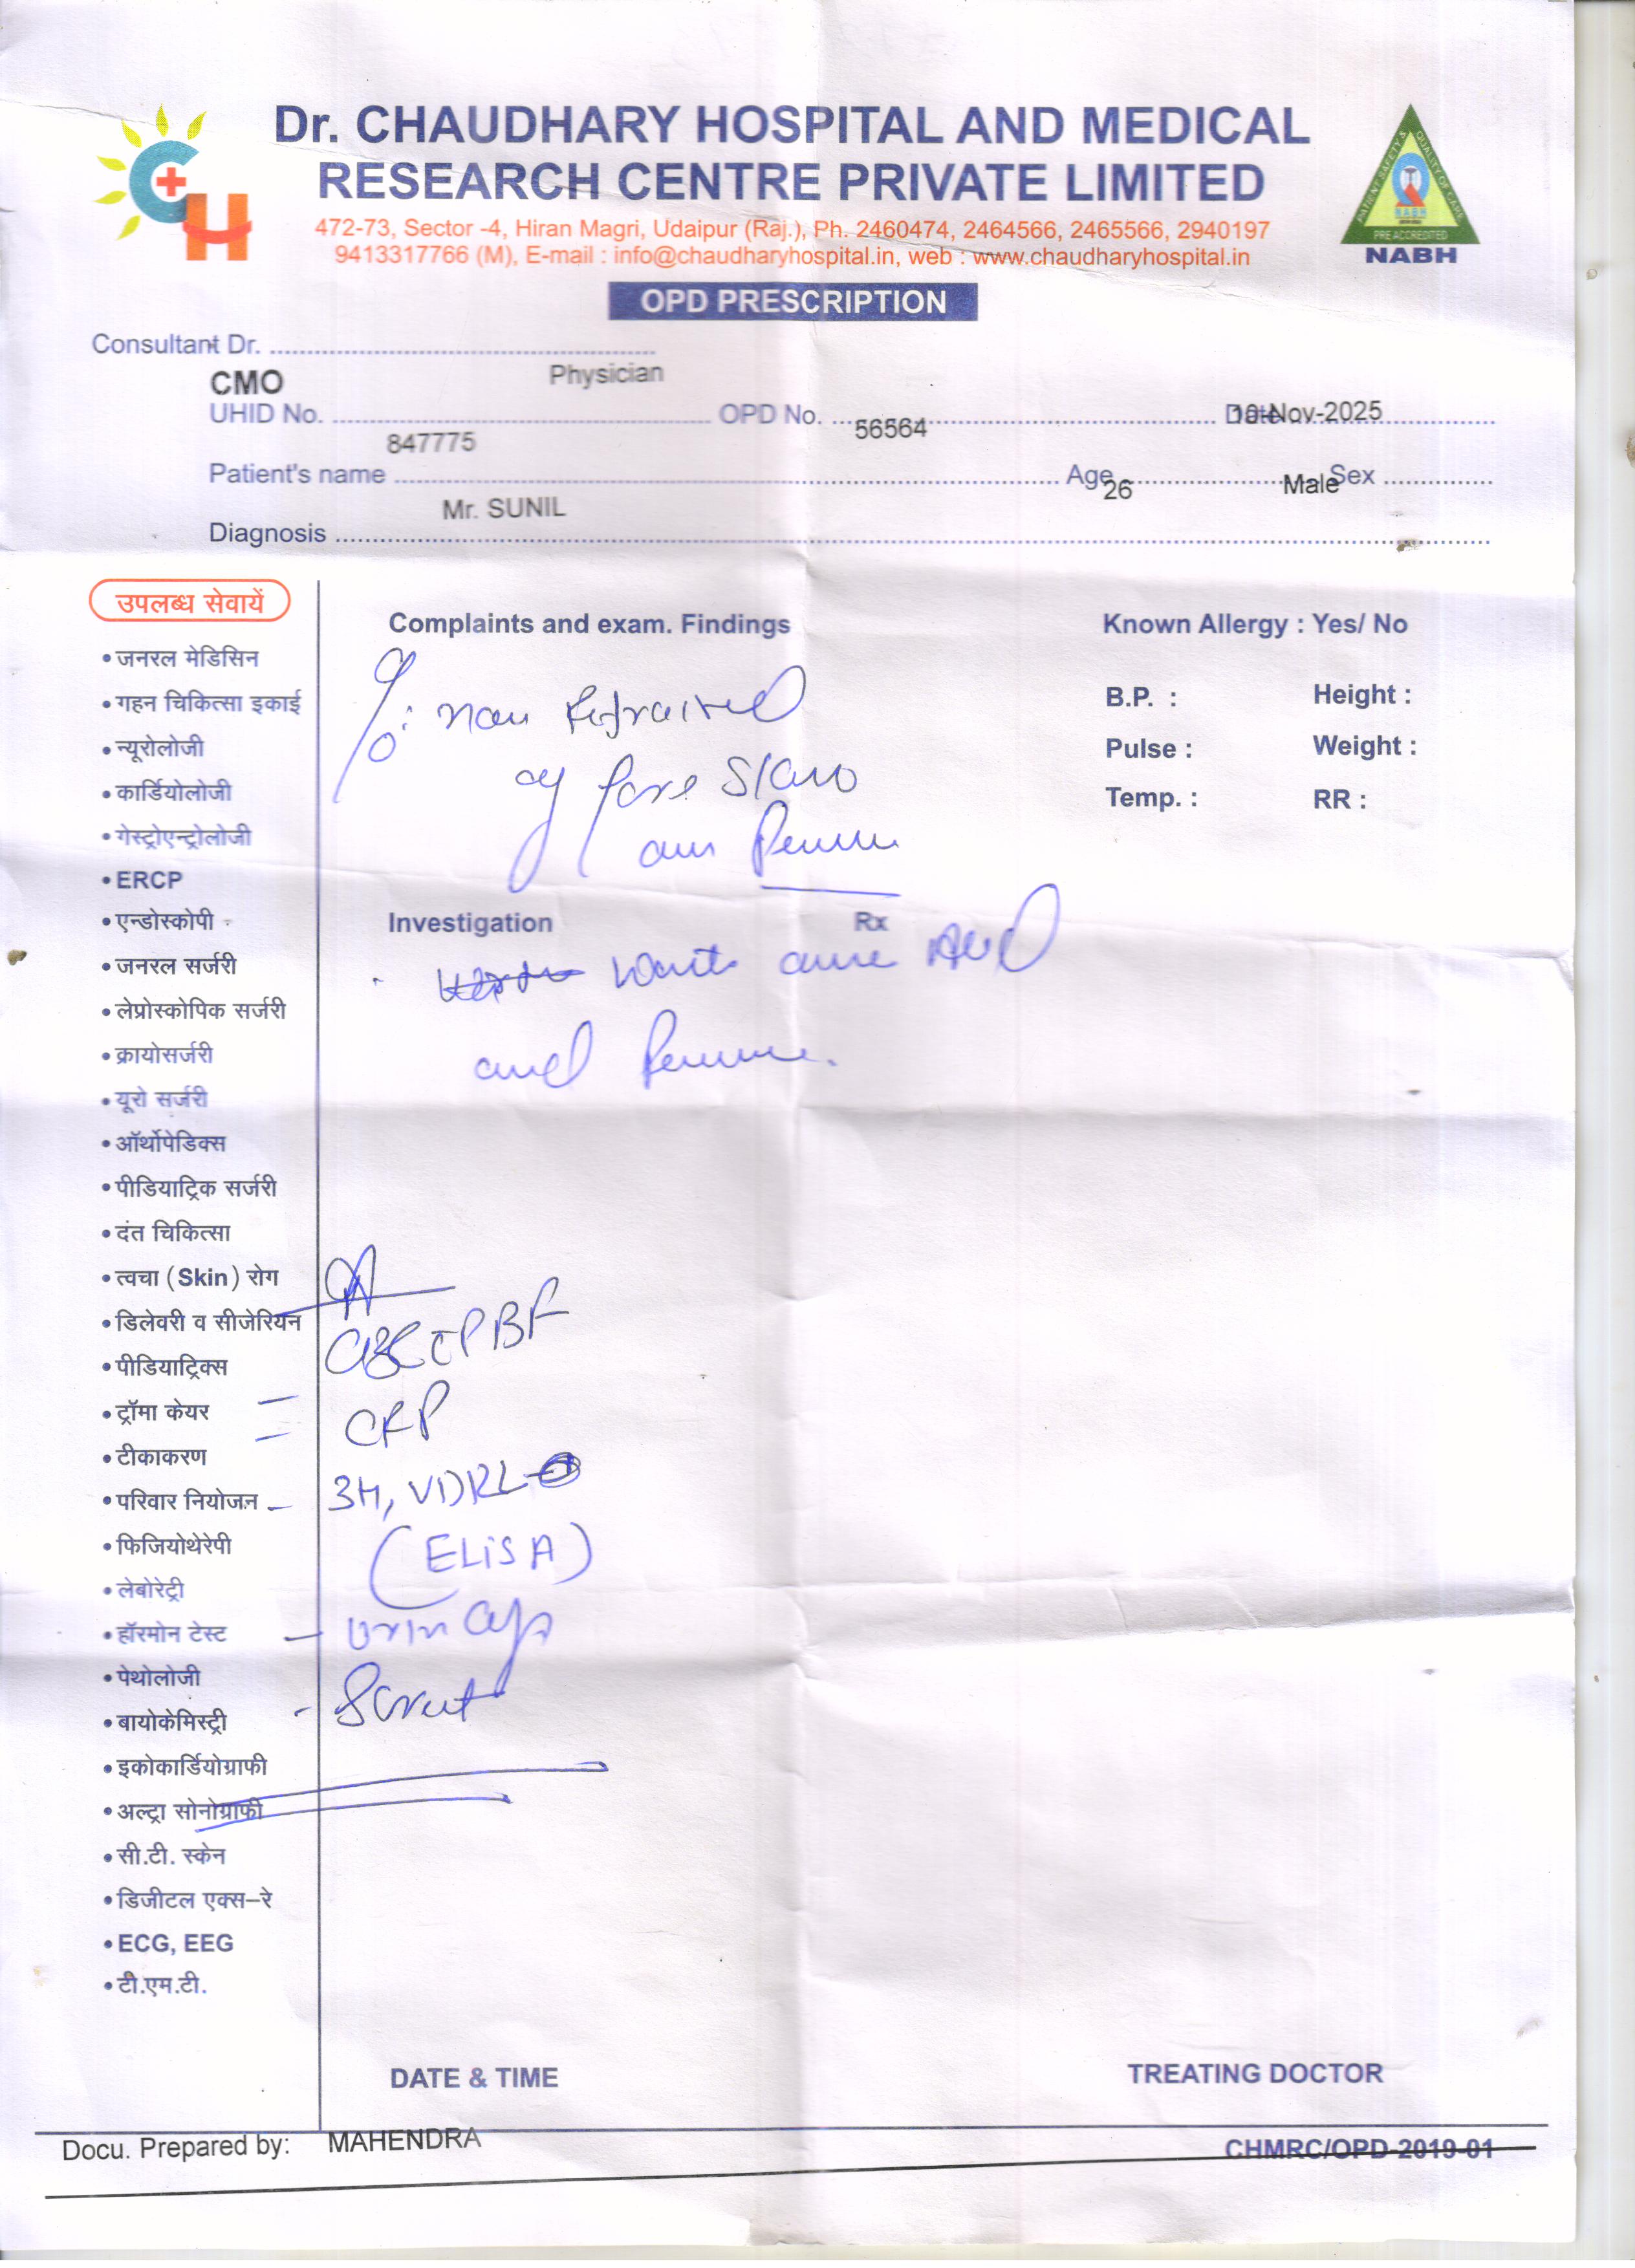 Dr. CHAUDHARY HOSPITAL AND MEDICAL
RESEARCH CENTRE PRIVATE LIMITED
472-73, Sector -4, Hiran Magri, Udaipur (Raj.), Ph. 2460474, 2464566, 2465566, 2940197
9413317766 (M), E-mail : info@chaudharyhospital.in, web : www.chaudharyhospital.in
PATIENT SAFETY & QUALITY OF CARE
NABH
PRE ACCREDITED
NABH
OPD PRESCRIPTION
Consultant Dr.
CMO Physician
UHID No. OPD No. Date
847775 56564 10-Nov-2025
Patient's name Age 26 Male Sex
Mr. SUNIL
Diagnosis
उपलब्ध सेवायें
• जनरल मेडिसिन
• गहन चिकित्सा इकाई
• न्यूरोलोजी
• कार्डियोलोजी
• गेस्ट्रोएन्ट्रोलोजी
• ERCP
• एन्डोस्कोपी
• जनरल सर्जरी
• लेप्रोस्कोपिक सर्जरी
• क्रायोसर्जरी
• यूरो सर्जरी
• ऑर्थोपेडिक्स
• पीडियाट्रिक सर्जरी
• दंत चिकित्सा
• त्वचा (Skin) रोग
• डिलेवरी व सीजेरियन
• पीडियाट्रिक्स
• ट्रॉमा केयर
• टीकाकरण
• परिवार नियोजन
• फिजियोथेरेपी
• लेबोरेट्री
• हॉरमोन टेस्ट
• पेथोलोजी
• बायोकेमिस्ट्री
• इकोकार्डियोग्राफी
• अल्ट्रा सोनोग्राफी
• सी.टी. स्केन
• डिजीटल एक्स-रे
• ECG, EEG
• टी.एम.टी.
Complaints and exam. Findings
Known Allergy : Yes/ No
B.P. : Height :
Pulse : Weight :
Temp. : RR :
non
Investigation Rx
and
CBC PBF
CRP
3H, VDRL
(ELISA)
DATE & TIME
TREATING DOCTOR
Docu. Prepared by: MAHENDRA
CHMRC/OPD-2019-01